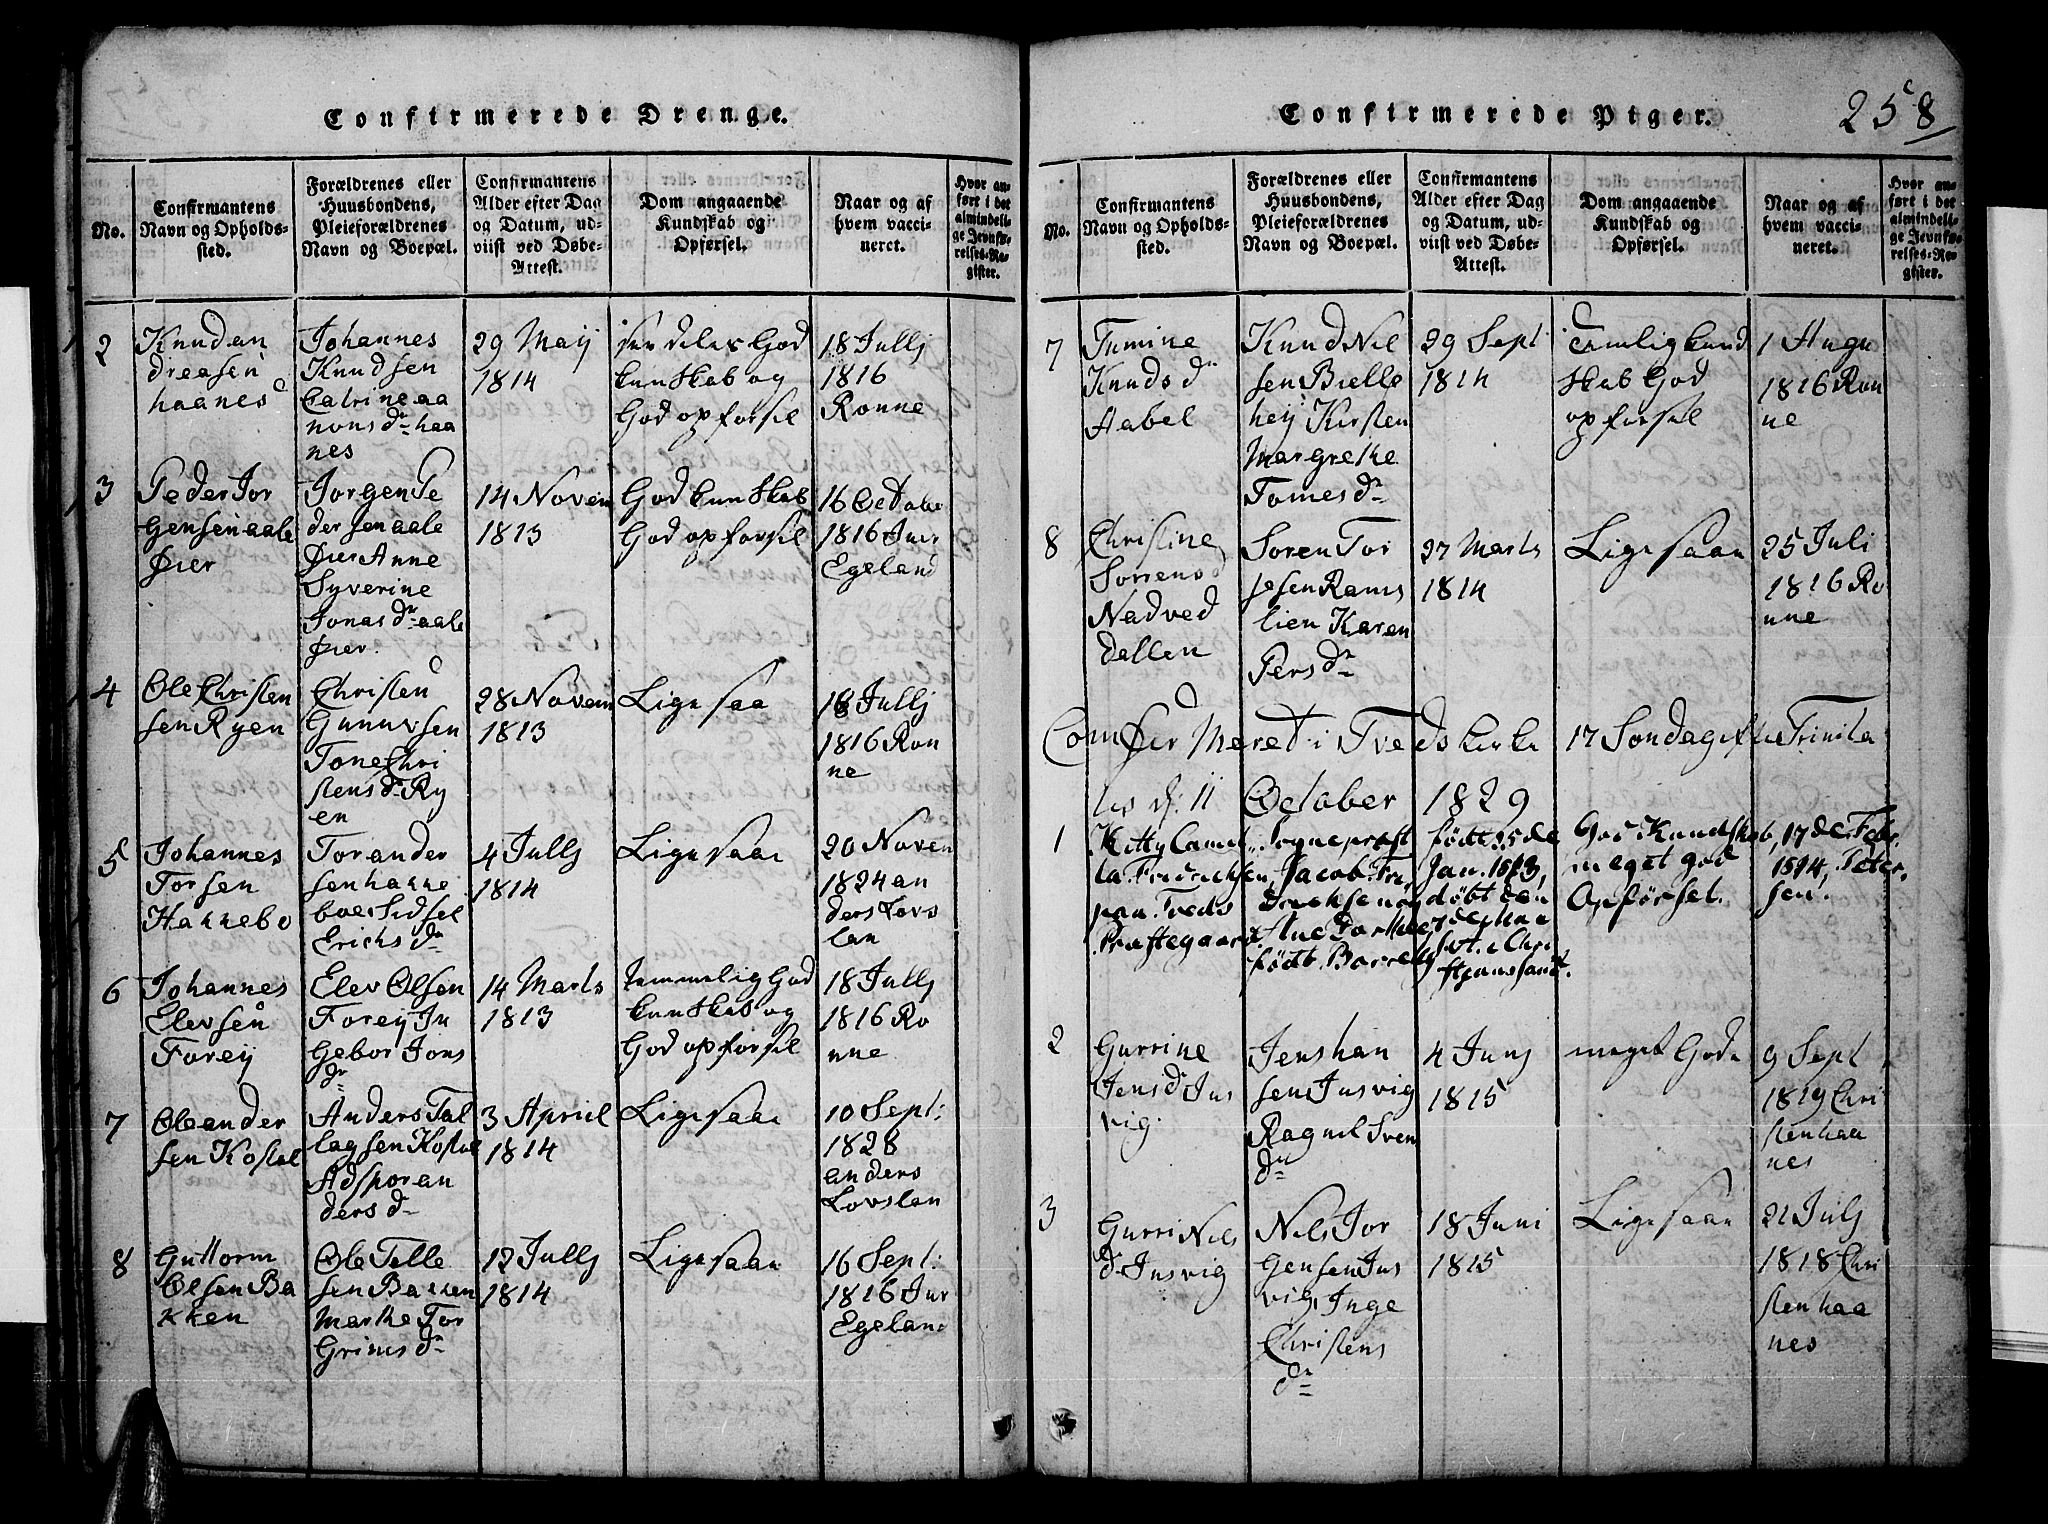 Confirmerede Drenge.
No.
Confirmantens
Navn og Opholds-
sted.
Forældrenes eller
Huusbondens,
Pleieforældrenes
Navn og Boepæl.
Confirmantens
Alder efter Dag
og Datum, ud-
viist ved Døbe-
Attest.
Dom angaaende
Kundskab og
Opførsel.
Naar og af
hvem vacci-
neret.
Hvor an-
ført i det
almindeli-
ge Jevnfø-
relses-Re-
gister.
2
Knud an
dreasen
haanes
Johannes
Knudsen
Catrine aa
nons dr haa
nes
29 Maij
1814
God
kunskab og
God opforsel
18 Jullj
1816
Ronne
3
Peder Jor
gensen aale
Øier
Jorgen Pe
dersen aale
Øier Anne
Syverine
Jonas dr aale
Øier.
14 Novem
1813
God kunskab
God opforsel
16 October
1816 Juer
Egeland
4
Ole Christen
sen Ryen
Christen
Gunuvsen
Tone Chri
stens dr Ry
en
28 Novem
1813
Lige saa
18 Jullj
1816 Ron
ne
5
Johannes
Torsen
Hakkebo
Tor ander
sen hakke
boe Sidsel
Erichs dr
4 Jullj
1814
Lige saa
20 Noven
1824 an
ders Lovs
lan
6
Johannes
Elevsen
Foreij
Elev Olsen
Foreij In
Gebor Jons
dr
14 Marts
1813
temmelig God
kunskab og
God opforsel
18 Jullj
1816 Ro
nne
7
Ole ander
sen Kostøl
Anders Tal
lagsen Kostøl
Adspor an
ders dr
3 Apriil
1814
Lige saa
10 Sept:
1828
anders
Lovslan
8
Guttorm
Olsen Ba
kken
Ole Telle
sen Bakken
Marthe Tor
Grims dr
12 Jullj
1814
Lige saa
16 Sept:
1816 Jur
Egeland
Confirmerede Piger.
258
No.
Confirmantens
Navn og Opholds-
sted.
Forældrenes eller
Huusbondens,
Pleieforældrenes
Navn og Boepæl.
Confirmantens
Alder efter Dag
og Datum, ud-
viist ved Døbe-
Attest.
Dom angaaende
Kundskab og
Opførsel.
Naar og af
hvem vacci-
neret.
Hvor an-
ført i det
almindeli-
ge Jevnfø-
relses-Re-
gister.
7
Tumine
Knuds dr
Habel
Knud Nil
sen Bielle
heij Kirsten
Margrethe
Tomes dr
29 Sept
1814
Temlig kund
skab God
opforsel
1 Augu
1816 Ron
ne
8
Christine
Sorrens d
Nadved
Dellen
Soren Tor
jesen Rams
lien Karen
Pers dr
27 Marts
1814
Lige saa
25 Juli
1816 Ro
nne
ConØier Meret i Tveds kirke 17 Sondag efte Trinita
tis d: 11 October 1829
1
Kitty Camil-
la Friderichsen
paa Tveds
Præstegaard
Sogneprest
Jacob Fri-
derichsen og
Ane Dorthea
født Barreby
født 25de
Jan. 1813,
døbt den
i Chri
stianssand.
God Kundskab,
meget god
Opførsel.
17de Febr.
1814, Peter-
sen.
2
Gurrine
Jens d Jns
vig
Jens han
sen Jnsvig
Ragnel Sven
dr
4 Junj
1815
meget Gode
9 Sept
1819 Chri
sten haa
nes
3
Gurri Nils
d Jnsvig
Nils Jor
gensen Jns
vig, Inge
Christens
dr
18 Juni
1815
Lige saa
21 Julj
1818 Chri
sten haa
nes